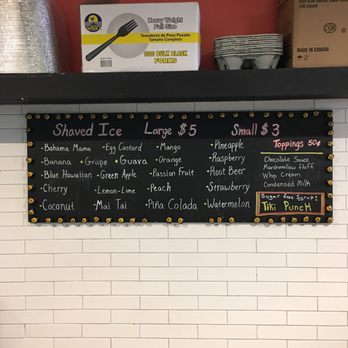 Heavy Weight
Full Size
Tenedores de Peso Pesado
Tamaño Completo
1000 BULK BLACK
FORKS
MADE IN CANADA
Shaved Ice Large $5 Small $3
Toppings 50¢
• Bahama Mama • Egg Custard • Mango • Pineapple
• Banana • Grape • Guava • Orange • Raspberry
• Blue Hawaiian • Green Apple • Passion Fruit • Root Beer
• Cherry • Lemon-Lime • Peach • Strawberry
• Coconut • Mai Tai • Piña Colada • Watermelon
Chocolate Sauce
Marshmallow Fluff
Whip Cream
Condensed Milk
Sugar free Syrup:
Tiki Punch